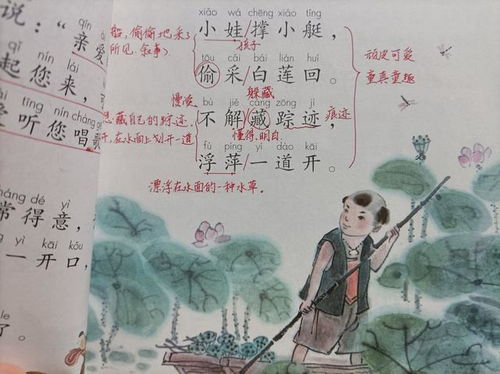 说：“亲爱
起您来，
听您唱
常得意，
一开口，
了。
xiǎo wá chēng xiǎo tǐng
小娃/撑小艇，
孩子
船，偷偷地采了
所见(叙事)
tōu cǎi bái lián huí
偷采/白莲回。
顽皮可爱
童真童趣
躲藏
慢慢
bù jiě cáng zōng jì
不解/藏踪迹，
痕迹
懂得，明白
藏自己的踪迹，
在水面上划开一道
fú píng yí dào kāi
浮萍/一道开。
漂浮在水面的一种水草。